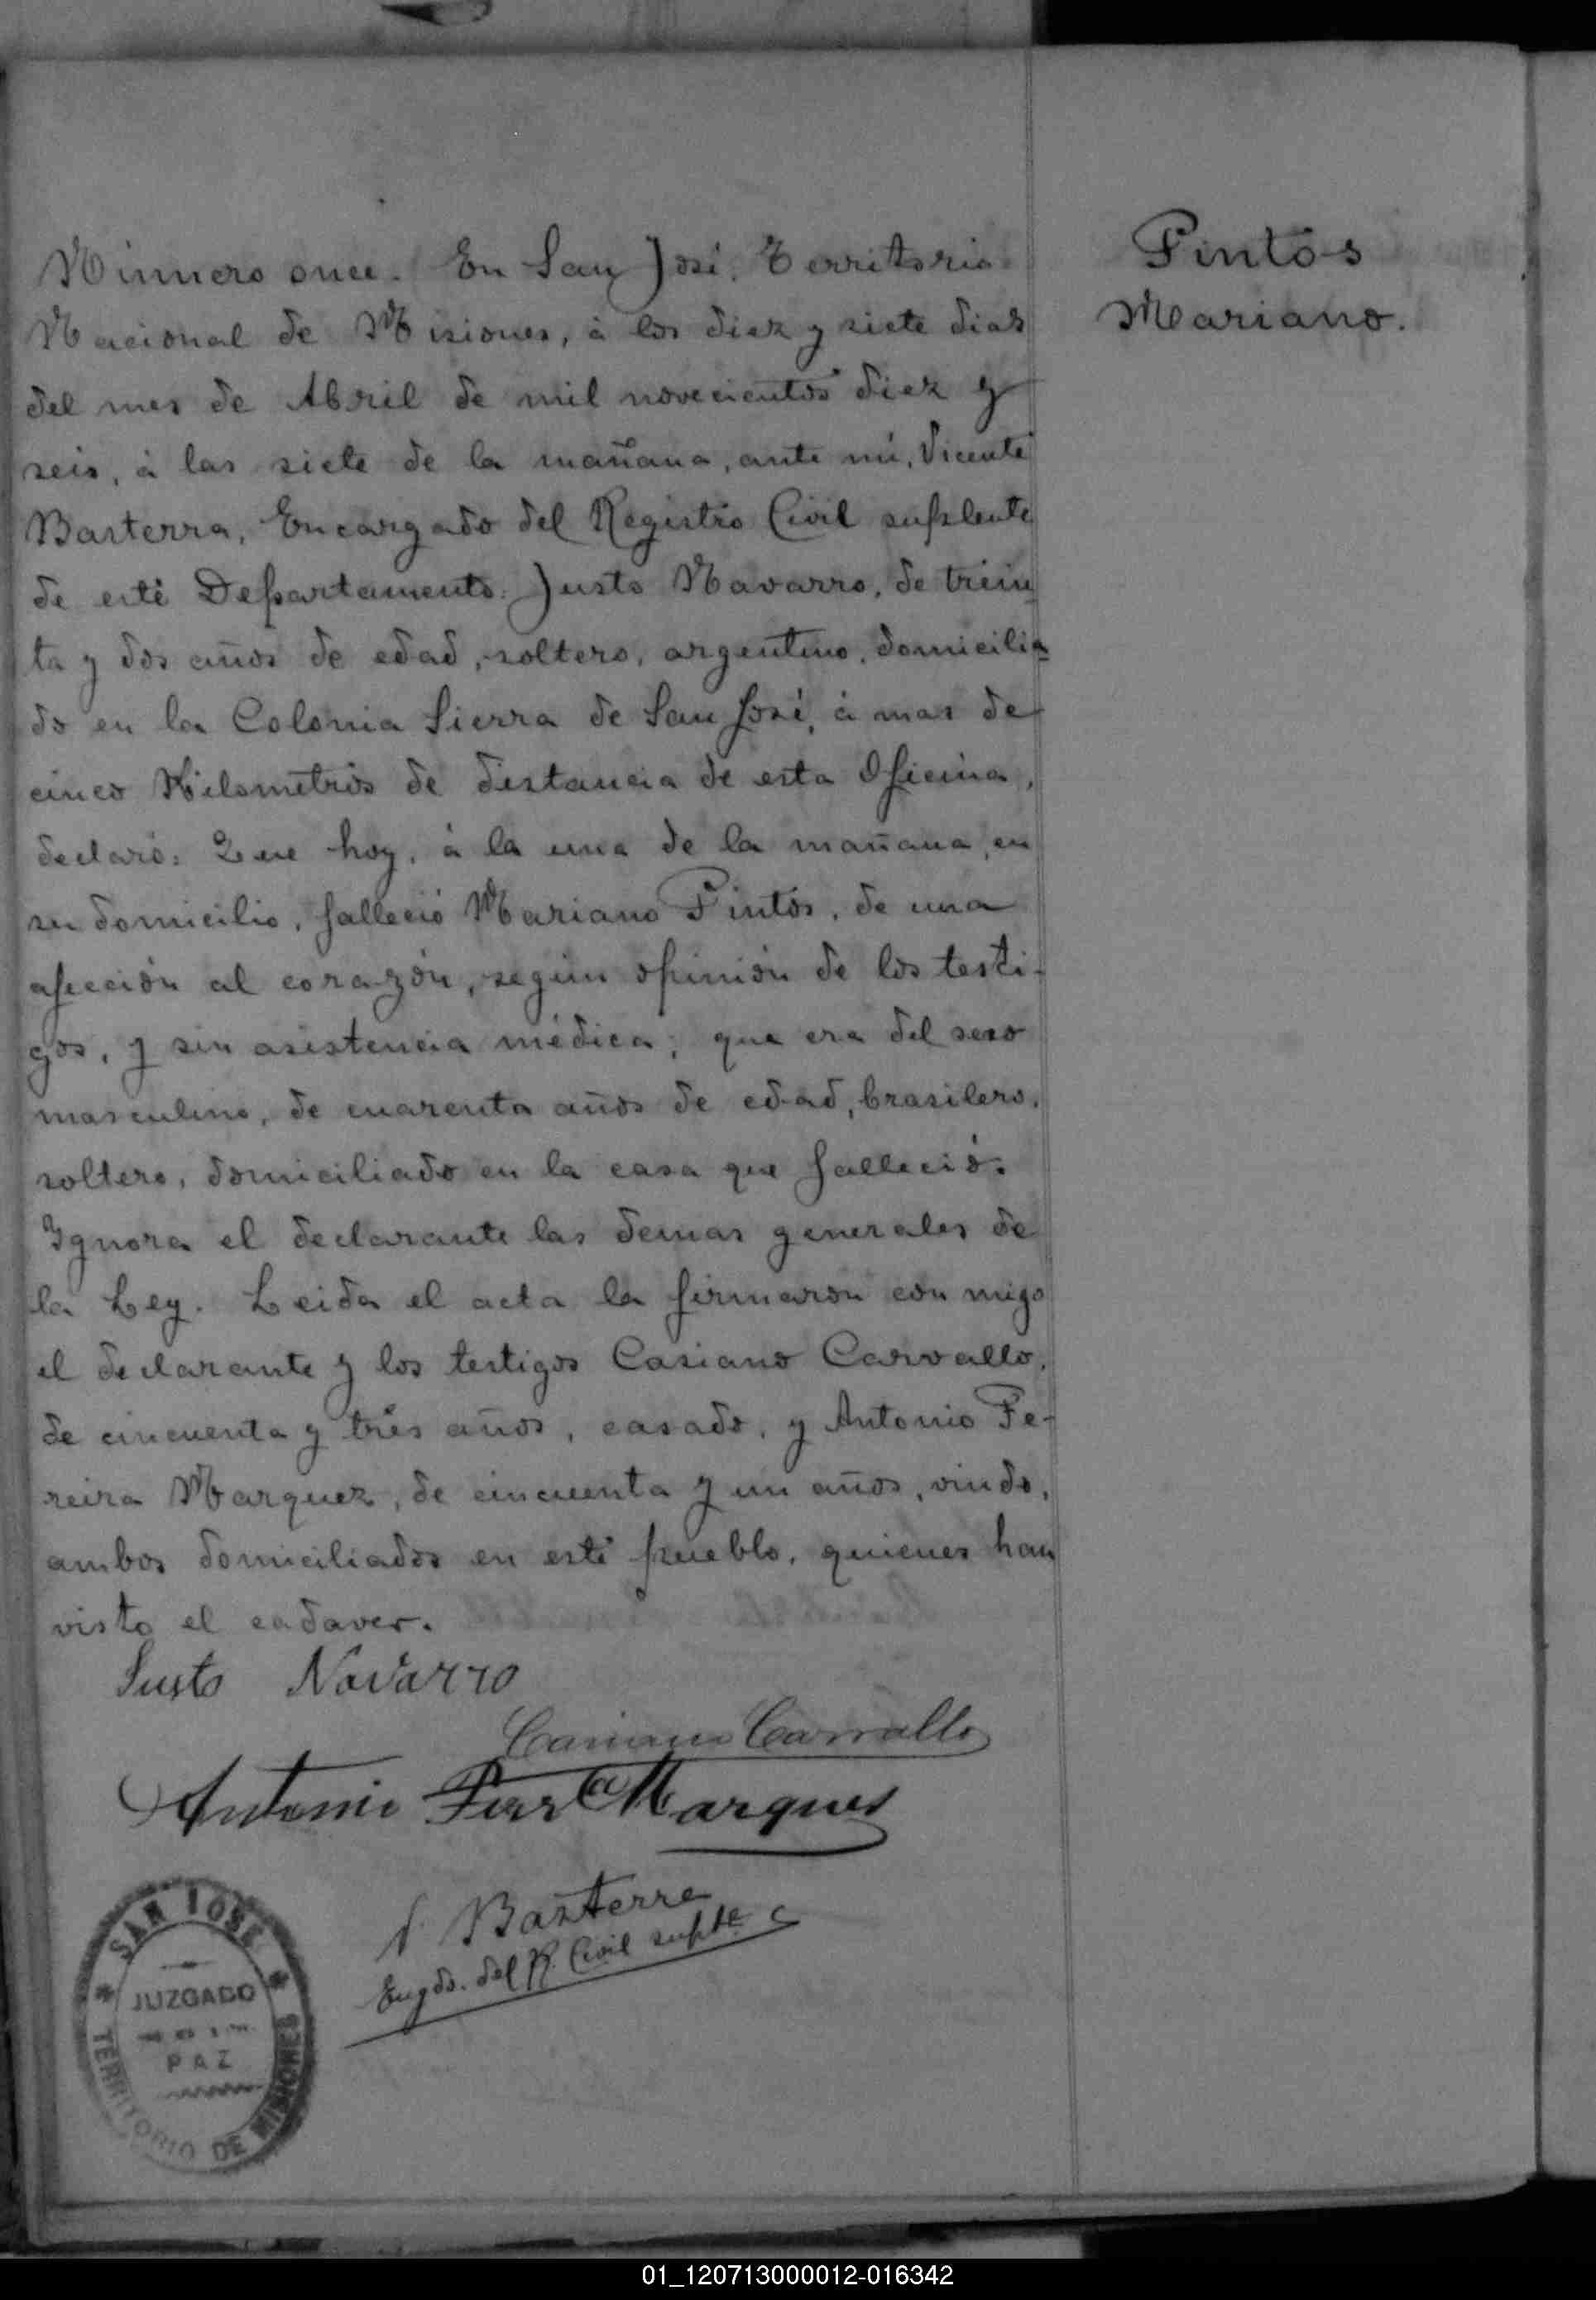 Número once. En San José, Territorio
Nacional de Misiones, á los diez y siete dias
del mes de Abril de mil novecientos diez y
seis, á las siete de la mañana, ante mí, Vicente
Basterra, Encargado del Registro Civil suplente
de este Departamento: Justo Navarro, de trein
ta y dos años de edad, soltero, argentino, domicilia
do en la Colonia Sierra de San José, á mas de
cinco Kilometros de distancia de esta Oficina,
declaró: Que hoy, á la una de la mañana, en
su domicilio, falleció Mariano Pintos, de una
afección al corazón, según opinión de los testi-
gos, y sin asistencia médica; que era del sexo
masculino, de cuarenta años de edad, brasilero,
soltero, domiciliado en la casa que falleció.
Ignora el declarante las demas generales de
la Ley. Leida el acta la firmaron con migo
el declarante y los testigos Casiano Carvallo,
de cincuenta y tres años, casado, y Antonio Pe-
reira Marquez, de cincuenta y un años, viudo,
ambos domiciliados en este pueblo, quienes han
visto el cadaver.
Justo Navarro
Casiano Carvallo
Antonio Perra Marques
V. Basterra
Engdo. del R. Civil suplte
Pintos
Mariano.
SAN JOSE
JUZGADO
DE
PAZ
TERRITORIO DE MISIONES
01_120713000012-016342